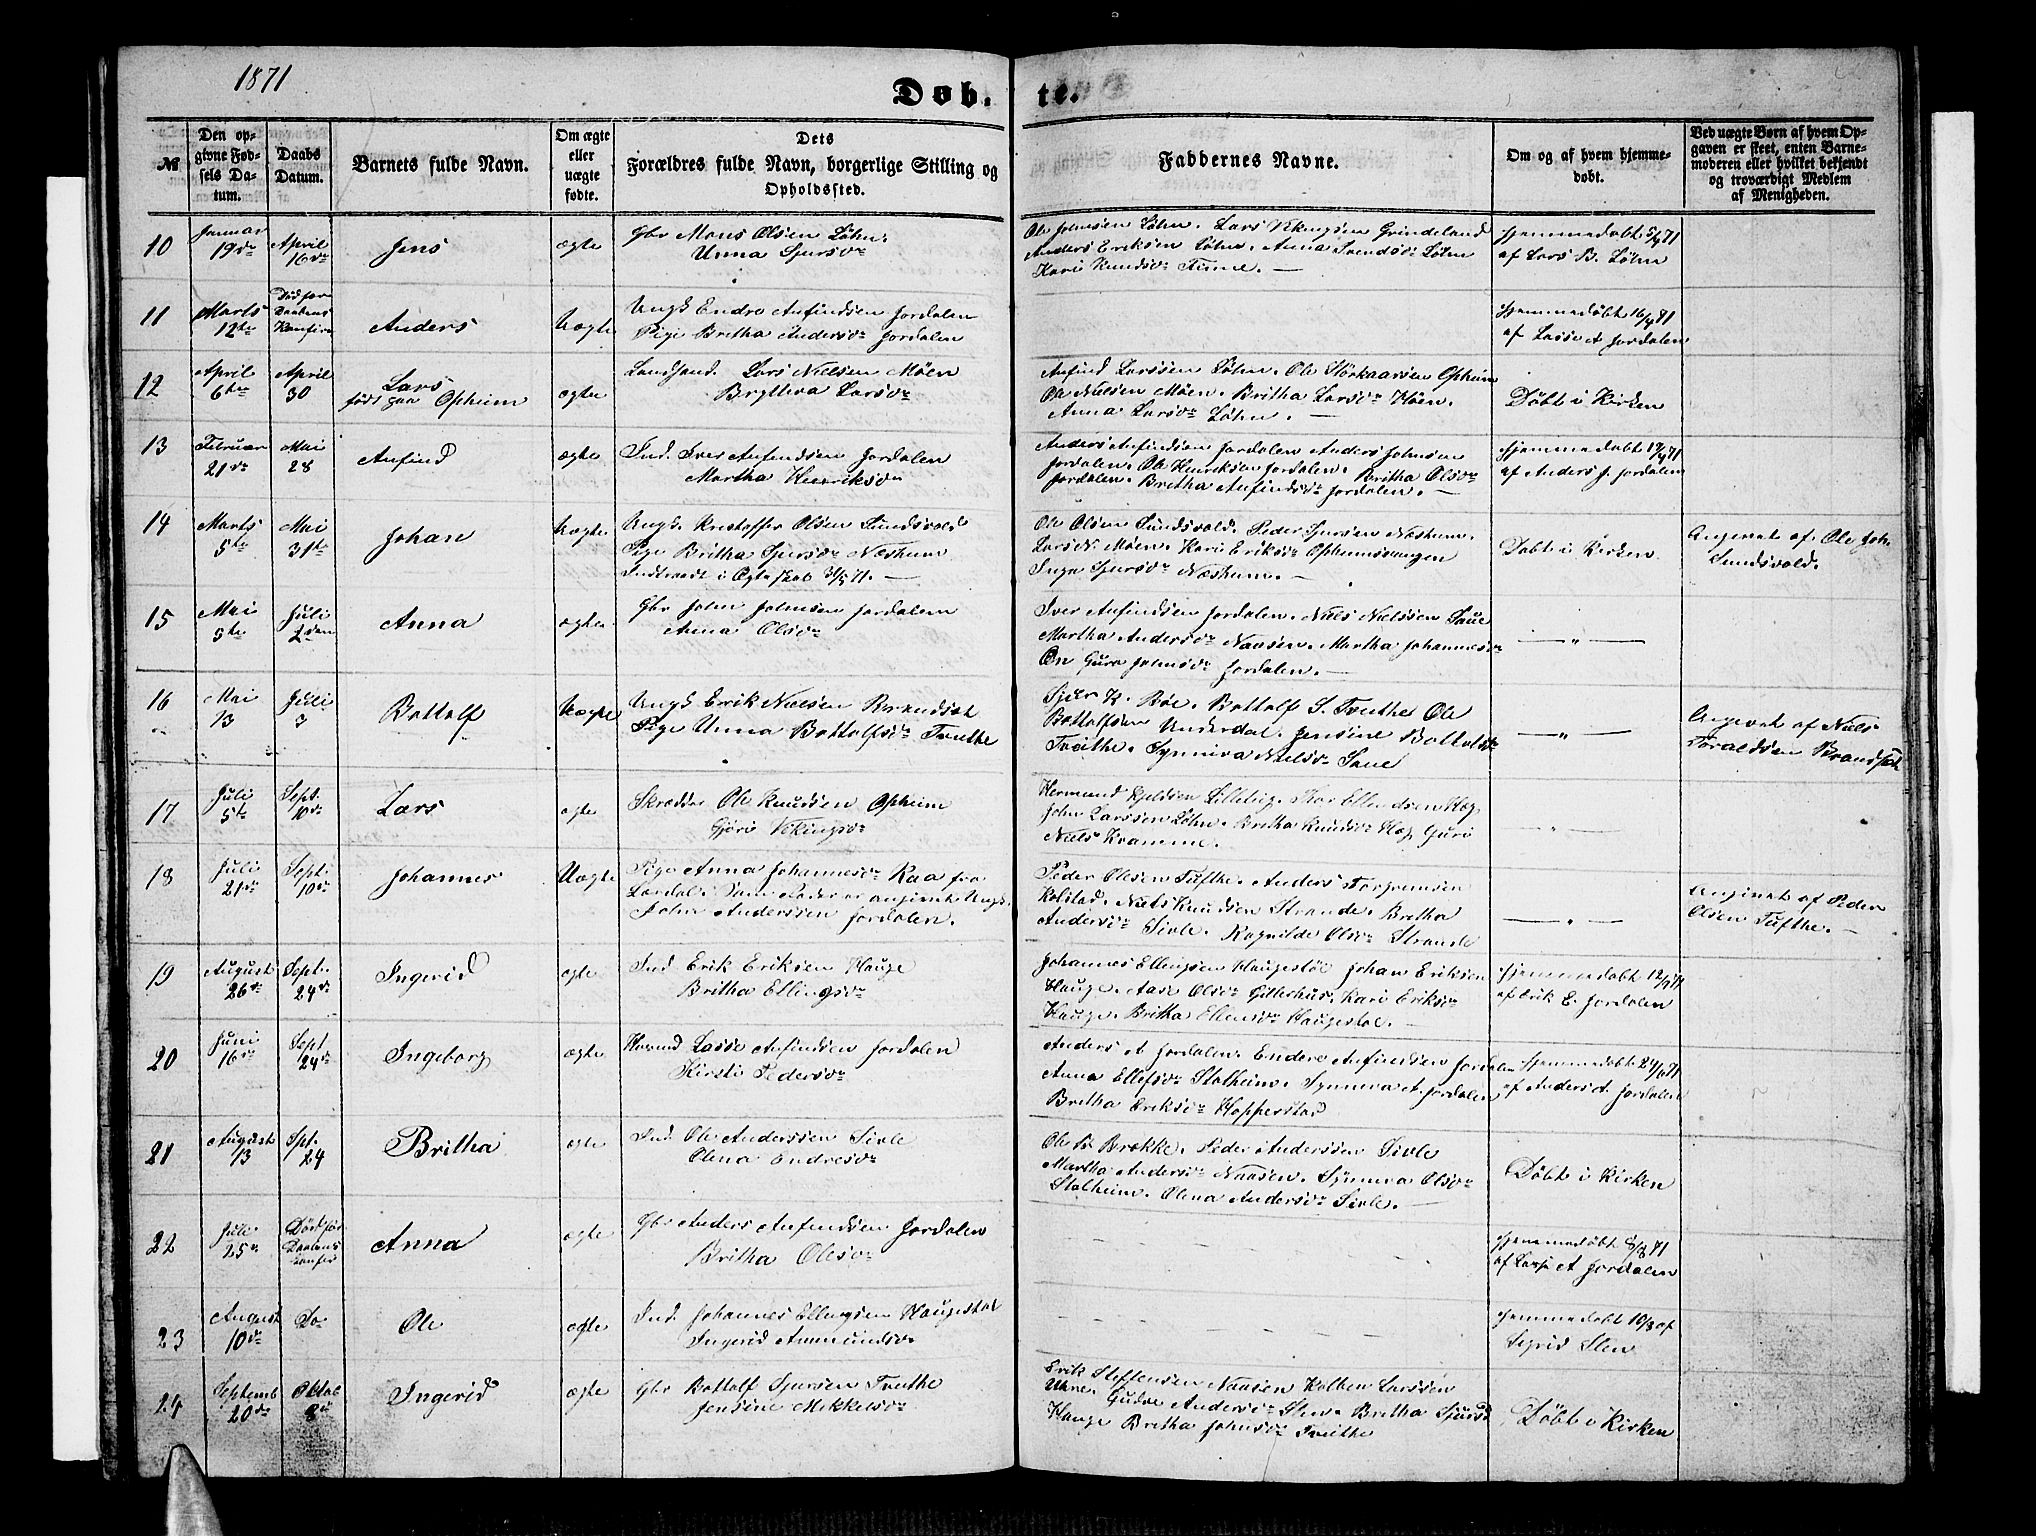 1871
Døb-te.
№
Den opgivne Fødsels Datum.
Daabs Datum.
Barnets fulde Navn.
Om ægte eller uægte fødte.
Dets Forældres fulde Navn, borgerlige Stilling og Opholdssted.
Faddernes Navne.
Om og af hvem hjemmedøbt.
Ved uægte Børn af hvem Opgaven er skeet, enten Barnemoderen eller hvilket bekjendt og troværdigt Medlem af Menigheden.
10
Januar 19de
April 16de
Jens
ægte
Gbr Mons Olsen Løhn.
Unna Sjursdr
Ole Johnsen Løhn. Lars Vikingsen Grindeland
Anders Eriksen Løhn. Anna Svendsdr Løhn
Kari Knudsdr Finne. —
Hjemmedøbt 5/4 71
af Lars B. Løhn
11
Marts 12te
Død før Daabens Konfirm
Anders
Uægte
Ungk Endre Anfindsen Jordalen
Pige Britha Andersdr Jordalen
Hjemmedøbt 16/4 71
af Lasse A Jordalen
12
April 6te
April 30
Lars
født paa Opheim
ægte
Landhand. Lars Nielsen Møen
Brytteva Larsdr
Anfind Larssen Løhn. Ole Størkaarsen Opheim
Ole Nielsen Møen. Britha Larsdr Møen.
Anna Larsdr Løhn. —
Døbt i Kirken
13
Februar 21de
Mai 28
Anfind
ægte
Ind. Iver Anfindsen Jordalen
Martha Henriksdr
Anders Anfindsen Jordalen Anders Johnsen
Jordalen. Ole Henriksen Jordalen. Britha Olsdr
Jordalen. Britha Anfindsdr Jordalen. —
Hjemmedøbt 17/4 71
af Anders J. Jordalen
14
Marts 5te
Mai 31te
Johan
Uægte
Ungk. Kristoffer Olsen Sundsvold
Pige Britha Sjursdr Næsheim
Indtraadt i Ægteskab 31/5 71. —
Ole Olsen Sundsvold. Peder Sjursen Næsheim.
Lars N. Møen. Kari Eriksdr Opheimsvangen
Inga Sjursdr Næsheim. —
Døbt i Kirken.
Angivet af Ole Joh.
Sundsvold.
15
Mai 9te
Juli 2den
Anna
ægte
Gbr John Johnsen Jordalen
Anna Olsdr
Iver Anfindsen Jordalen. Niels Nielssen Saue
Martha Andersdr Naasen. Martha Johannesdr
Øn Guro Johnsdr Jordalen. —
— „ —
16
Mai 13
Juli 3
Bottolf
Uægte
Ungk Erik Nielsen Brandset
Pige Unna Bottolfsdr Tvinthe
Sjur K. Bøe. Bottolf S. Tvinthe Ole
Bottolfsen Underdal. Jensine Bottolfsdr
Tvinthe. Synniva Nielsdr Saue
— „ —
Angivet af Niels
Toraldsen Brandset
17
Juli 5te
Sept. 10de
Lars
ægte
Skrædder Ole Knudsen Opheim
Gjøri Vikingsdr
Hermund Kjeldsen Lillebig. Ellendsen Hæg
John Larssen Løhn. Britha Knudsdr Hæg Guri
Niels Kramme.
— „ —
18
Juli 21de
Sept. 10de
Johannes
Uægte
Pige Anna Johannesdr Raa fra
Lærdal. Som Fader er angivet Ungk.
John Anderssen Jordalen.
Peder Olsen Tufthe. Anders Torgrimsen
Kolstad. Niels Knudsen Strande. Britha
Andersdr Sivle. Ragnilde Olsdr Strande
— „ —
Angivet af Peder
Olsen Tufthe. —
19
August 26de
Sept. 24de
Ingerid
ægte
Ind. Erik Eriksen Hauge
Britha Ellingsdr
Johannes Ellingsen Haugestøl Johan Eriksen
Hauge. Aase Olsdr Gillerhus. Kari Eriksdr
Hauge. Britha Ellensdr Haugestøl. —
Hjemmedøbt 12/9 71
af Erik E. Jordalen
20
Juni 16de
Sept 24de
Ingeborg
ægte
Huusmd Lasse Anfindsen Jordalen
Kirsti Pedersdr
Anders A Jordalen. Endre Anfindsen Jordalen
Anna Ellefsdr Stalheim. Synneva A. Jordalen
Britha Eriksdr Hopperstad
Hjemmedøbt 24/6 71
af Anders A. Jordalen
21
August 13
Spt. 24
Britha
ægte
Ind. Ole Anderssen Sivle
Olena Endresdr
Ole Brække. Peder Anderssen Sivle
Martha Andersdr Naasen. Synneva Olsdr
Stalheim. Olena Andersdr Sivle. —
Døbt i Kirken
22
Juli 25de
Død før Daabens Konfir
Anna
ægte
Gbr Anders Anfindsen Jordalen
Britha Olsdr
Hjemmedøbt 8/8 71
af Lasse A Jordalen
23
August 10de
Do
Ole
ægte
Ind. Johannes Ellingsen Haugestøl
Ingerid Aamundsdr
Hjemmedøbt 10/8 af
Sigrid Sten
24
Septemb 20de
Oktob 8de
Ingerid
ægte
Gbr Bottolf Sjursen Tvinthe
Jensine Mikkelsdr
Erik Steffensen Naasen Kolben Larssen
Uhre. Gudve Andersdr Sten. Britha Sjursd
Hauge Britha Johnsdr Tvinthe
Døbt i Kirken